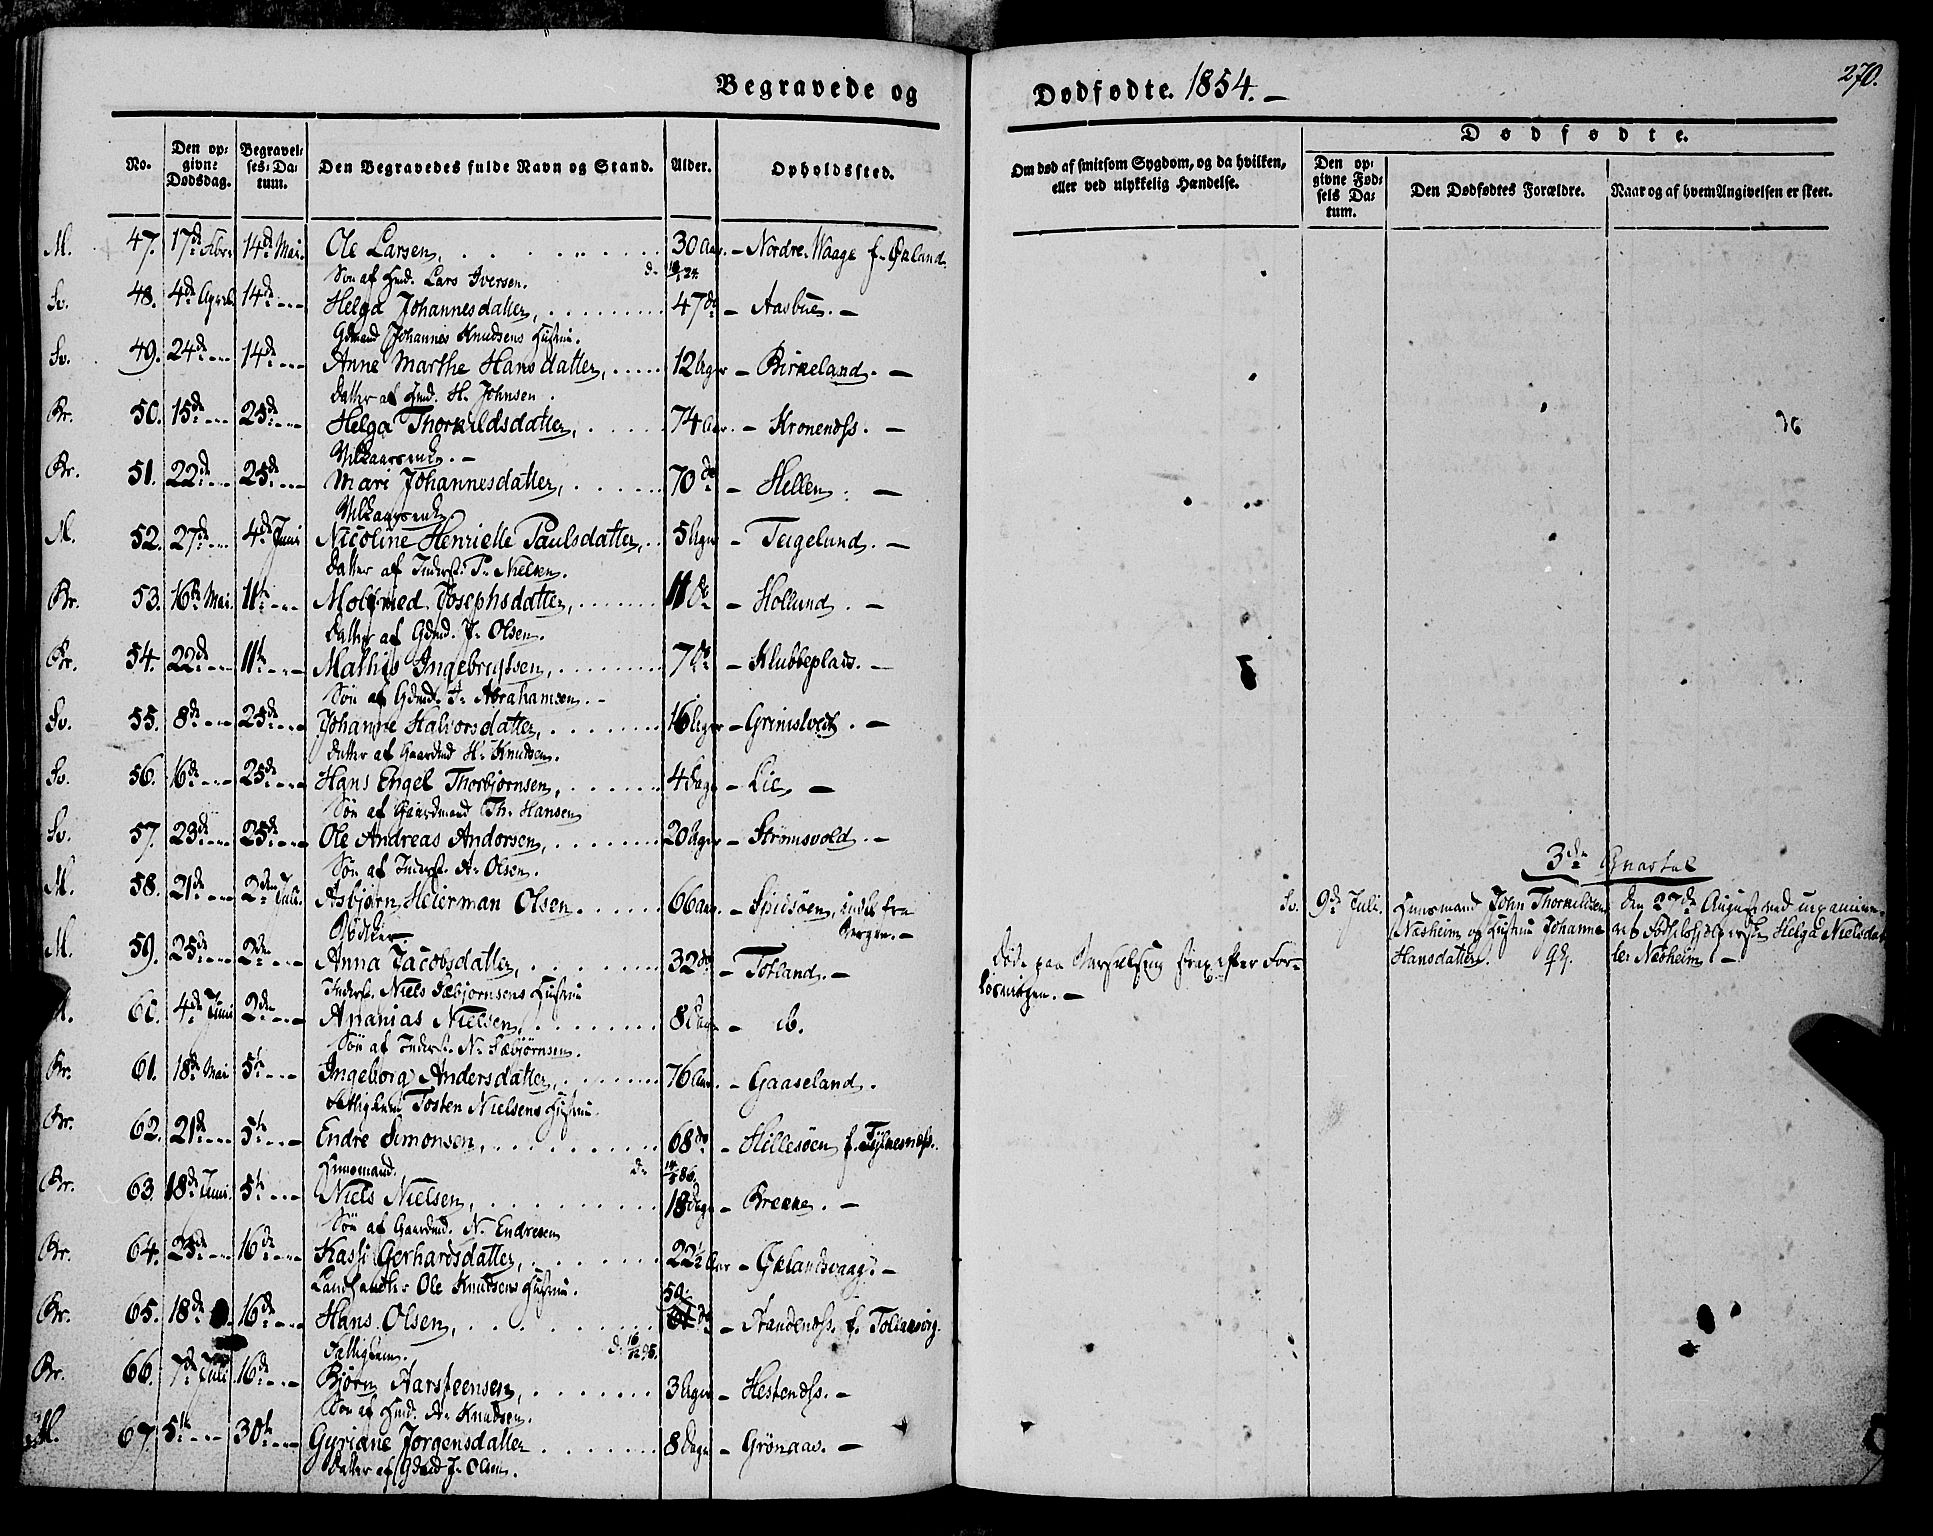 Begravede og
Dødfødte. 1854. —
270.
No.
Den opgivne Dødsdag.
Begravelses-Datum.
Den Begravedes fulde Navn og Stand.
Alder.
Opholdssted.
Om død af smitsom Sygdom, og da hvilken, eller ved ulykkelig Hændelse.
Dødfødte.
Den opgivne Fødsels Datum.
Den Dødfødtes Forældre.
Naar og af hvem Angivelsen er skeet.
M. 47. 17de 14de Mai. Ole Larsen, 30 Aar. — Nordre Waage f. Økland.
Søn af Hmd. Lars Iversen.
Sv. 48. 4de April 14de Helga Johannesdatter, 47 do — Aasbue. —
Gdmand Johannes Knudsens Hustru.
Sv. 49. 24de 14de Anne Marthe Hansdatter, 12 Uger — Birkeland. —
Datter af Hmd. H. Johnsen.
Br. 50. 15de 25de Helga Thorkildsdatter, 74 Aar. — Kronenæss. —
Br. 51. 22de 25de Mari Johannesdatter, 70 do — Hellen. —
M. 52. 27de 4de Juni Nicoline Henriette Paulsdatter, 5 Uger — Teigelund. —
Datter af Inderst. P. Nielsen.
Br. 53. 16de Mai. 11te Molfrid Josephsdatter, 11 do — Hollund. —
Datter af Gdmd. J. Olsen.
Br. 54. 22de 11te Mathis Ingebrigtsen, 7 do — Klubbeplads. —
Søn af Gdmd. I. Abrahamsen. —
Sv. 55. 8de 25de Johanne Halvorsdatter, 16 Uger — Grimstvedt. —
Datter af Gaardmd H. Knudsen.
Sv. 56. 16de 25de Hans Engel Thorbjørnsen, 4 Dage — Lie, —
Søn af Gaardmand Th. Hansen
Sv. 57. 23de 25de Ole Andreas Andersen, 20 Uger — Strømsvold. —
Søn af Inderst. A. Olsen.
M. 58. 21de 2den Juli. Asbjørn Heierman Olsen 66 Aar. — Spidsøen, fra Bergen. —
M. 59. 25de 2den Anna Jacobsdatter, 32 do — Tofland. — Døde paa Barselseng strax efter Forløsningen. —
Inderst. Niels Sæbjørnsens Hustru
M. 60. 4de Juni 2den Ananias Nielsen, 8 Dage — ib.
Søn af Inderst. N. Sæbjørnsen.
Br. 61. 18de Mai 5te Ingeborg Andersdatter, 76 Aar. — Gaaseland.
Fattiglem Tosten Nielsens Hustru.
Br. 62. 21de 5te Endre Simonsen, 68 do — Hillesøen f. Tyknenæss.
Huusmand.
Br. 63. 18de Juni. 5te Niels Nielsen, 18 Dage — Brekke. —
Søn af Gaardmd. N. Endresen
Br. 64. 25de 16de Kassi Gerhardsdatter, 22½ Aar — Øklandsvaag. —
Landhandler Ole Knudsens Hustru.
Br. 65. 18de 16de Hans Olsen, 59 do — Strandenæss. f.
Fattiglem.
Br. 66. 7de Juli 16de Bjørn Aarsteensen, 3 Uger — Hestenæss. —
Søn af Hmd. A. Knudsen.
M. 67. 5te 30te Gyriane Jørgensdatter 8 Dage — Grønaas. —
Datter af Gdmd J. Olsen.
3die Quartal
Sv. 9de Juli. Huusmand John Thorkildsen Næsheim og Hustru Johanne Hansdatter.
den 27de August ved Helga Nielsdatter Næsheim —